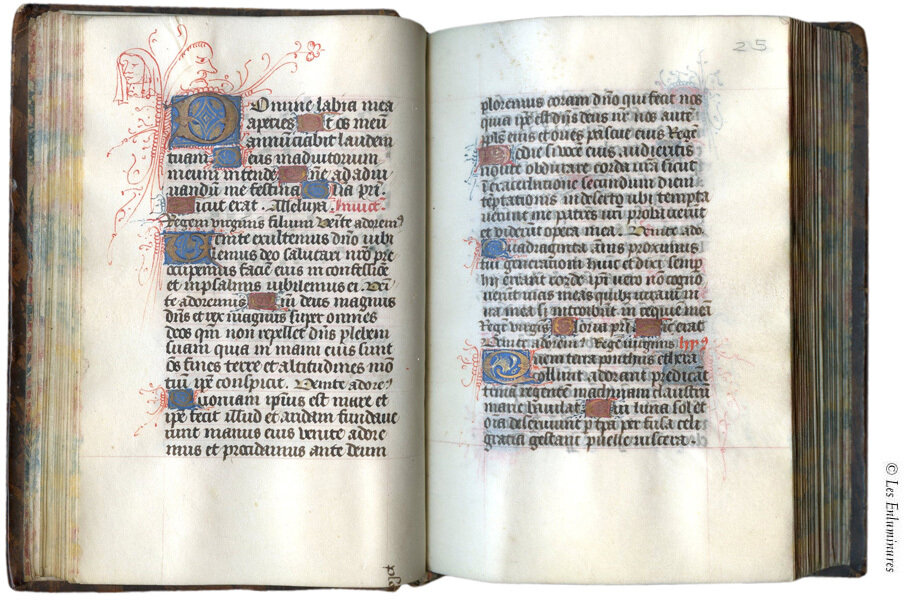 Domine labia mea
aperies Et os meu͞
annunciabit laudem
tuam Deus in adiutorium
meum intende Dn͞e ad adiu
uandum me festina Gl͞ia pri.
Sicut erat. Alleluya. Inuit͞.
Regem virginis filium Venite adorem⁹
Uenite exultemus dn͞o iubi
lemus deo salutari nr͞o pre
occupemus facie͞ eius in confessio͞e
et in psalmis iubilemus ei. Ven͞i
te adoremus Qm͞ deus magnus
dn͞s et rex magnus super omnes
deos qm͞ non repellet dn͞s plebem
suam quia in manu eius sunt
om͞s fines terre et altitudines mo͞
tiu͞ ip͞e conspicit. Venite adore⁹
Quoniam ipsius est mare et
ip͞e fecit illud et aridam fundaue
runt manus eius venite adore
mus et procidamus ante deum
plo
25
ploremus coram dn͞o qui fecit nos
quia ip͞e est dn͞s deus nr͞ nos aute͞
ppl͞s eius et oues pascue eius Rege͞
Hodie si voce͞ eius audieritis
nolite obdurare corda ur͞a sicut
in exacerbatione secundum diem
te͞ptationis in deserto ubi tempta
uerunt me patres ur͞i probauerunt
et viderunt opera mea. Venite ado.
Quadraginta an͞is proximus
fui generationi huic et dixi semp͞
hii errant corde ip͞i vero no͞ cogno
uerunt vias meas quib⁹ iuraui in
ira mea si introibunt in requie͞ mea͞
Rege͞ virgis Gloria pri͞ Sicut erat
Venite adorem⁹ Rege͞ virginis hyp⁹
Quem terra ponthus ethera
collunt adorant predica͞t
trina͞ regente͞ machinam claustru͞
marie baiulat Cui luna sol et
oi͞a deseruiunt p͞ t͞pa per fusa celi
gracia gestant puelle viscera.
© Les Enluminures